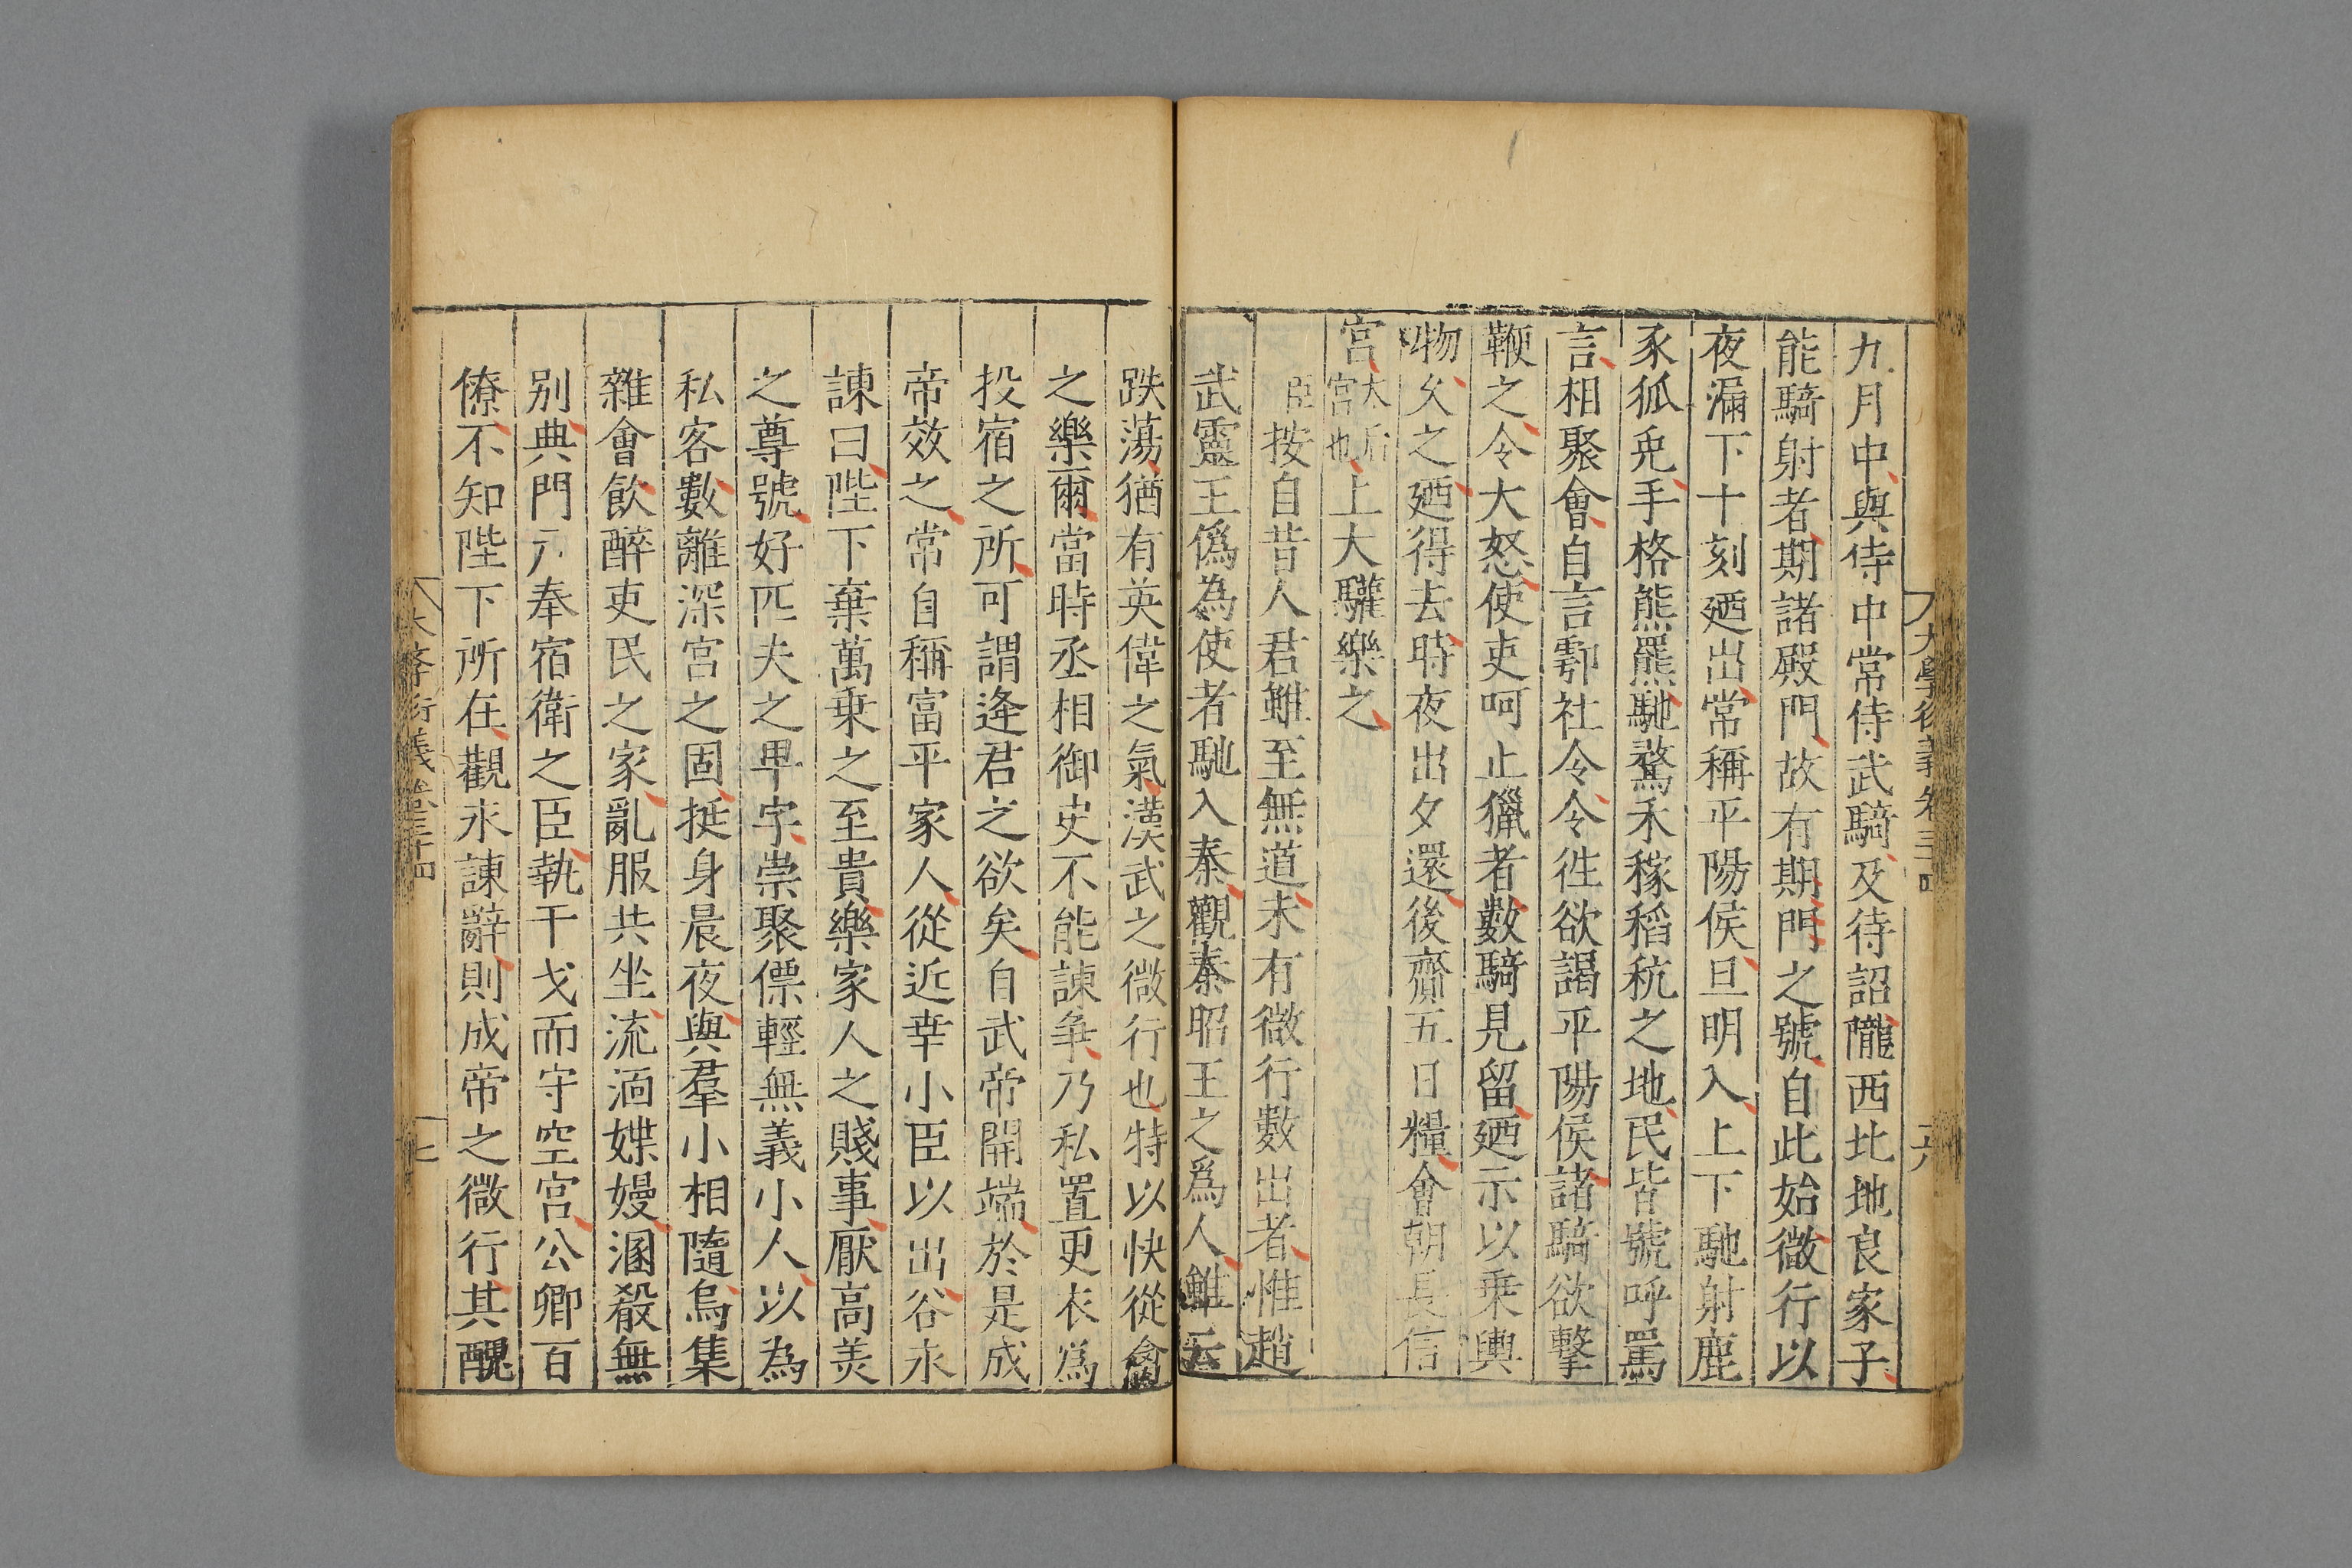 大學衍義卷三十四 六
九月中與侍中常侍武騎及待詔隴西北地良家子
能騎射者期諸殿門故有期門之號自此始微行以
夜漏下十刻廼出常稱平陽侯旦明入山下馳射鹿
豕狐兎手格熊羆馳騖禾稼稻秔之地民皆號呼罵
言相聚會自言鄠社令令徃欲謁平陽侯諸騎欲擊
鞭之令大怒使吏呵止獵者數騎見留廼示以乗輿
物乆之廼得去時夜出夕還後齎五日糧會朝長信
宮太后宮也上大驩樂之
臣按自昔人君雖至無道未有微行數出者惟趙
武靈王僞為使者馳入秦觀秦昭王之爲人雖云
跌蕩猶有英偉之氣漢武之微行也特以快從禽
之樂爾當時丞相御史不能諫争乃私置更衣爲
投宿之所可謂逄君之欲矣自武帝開端於是成
帝效之常自稱富平家人從近幸小臣以出谷永
諫曰陛下棄萬乗之至貴樂家人之賤事厭高羙
之尊號好匹夫之卑字崇聚僄輕無義小人以為
私客數離深宮之固挺身晨夜與羣小相隨烏集
雜會飲醉吏民之家亂服共坐流湎媟嫚溷殽無
别典門戸奉宿衛之臣執干戈而守空宮公卿百
僚不知陛下所在觀永諫辭則成帝之微行其醜
大學衍義卷三十四 七